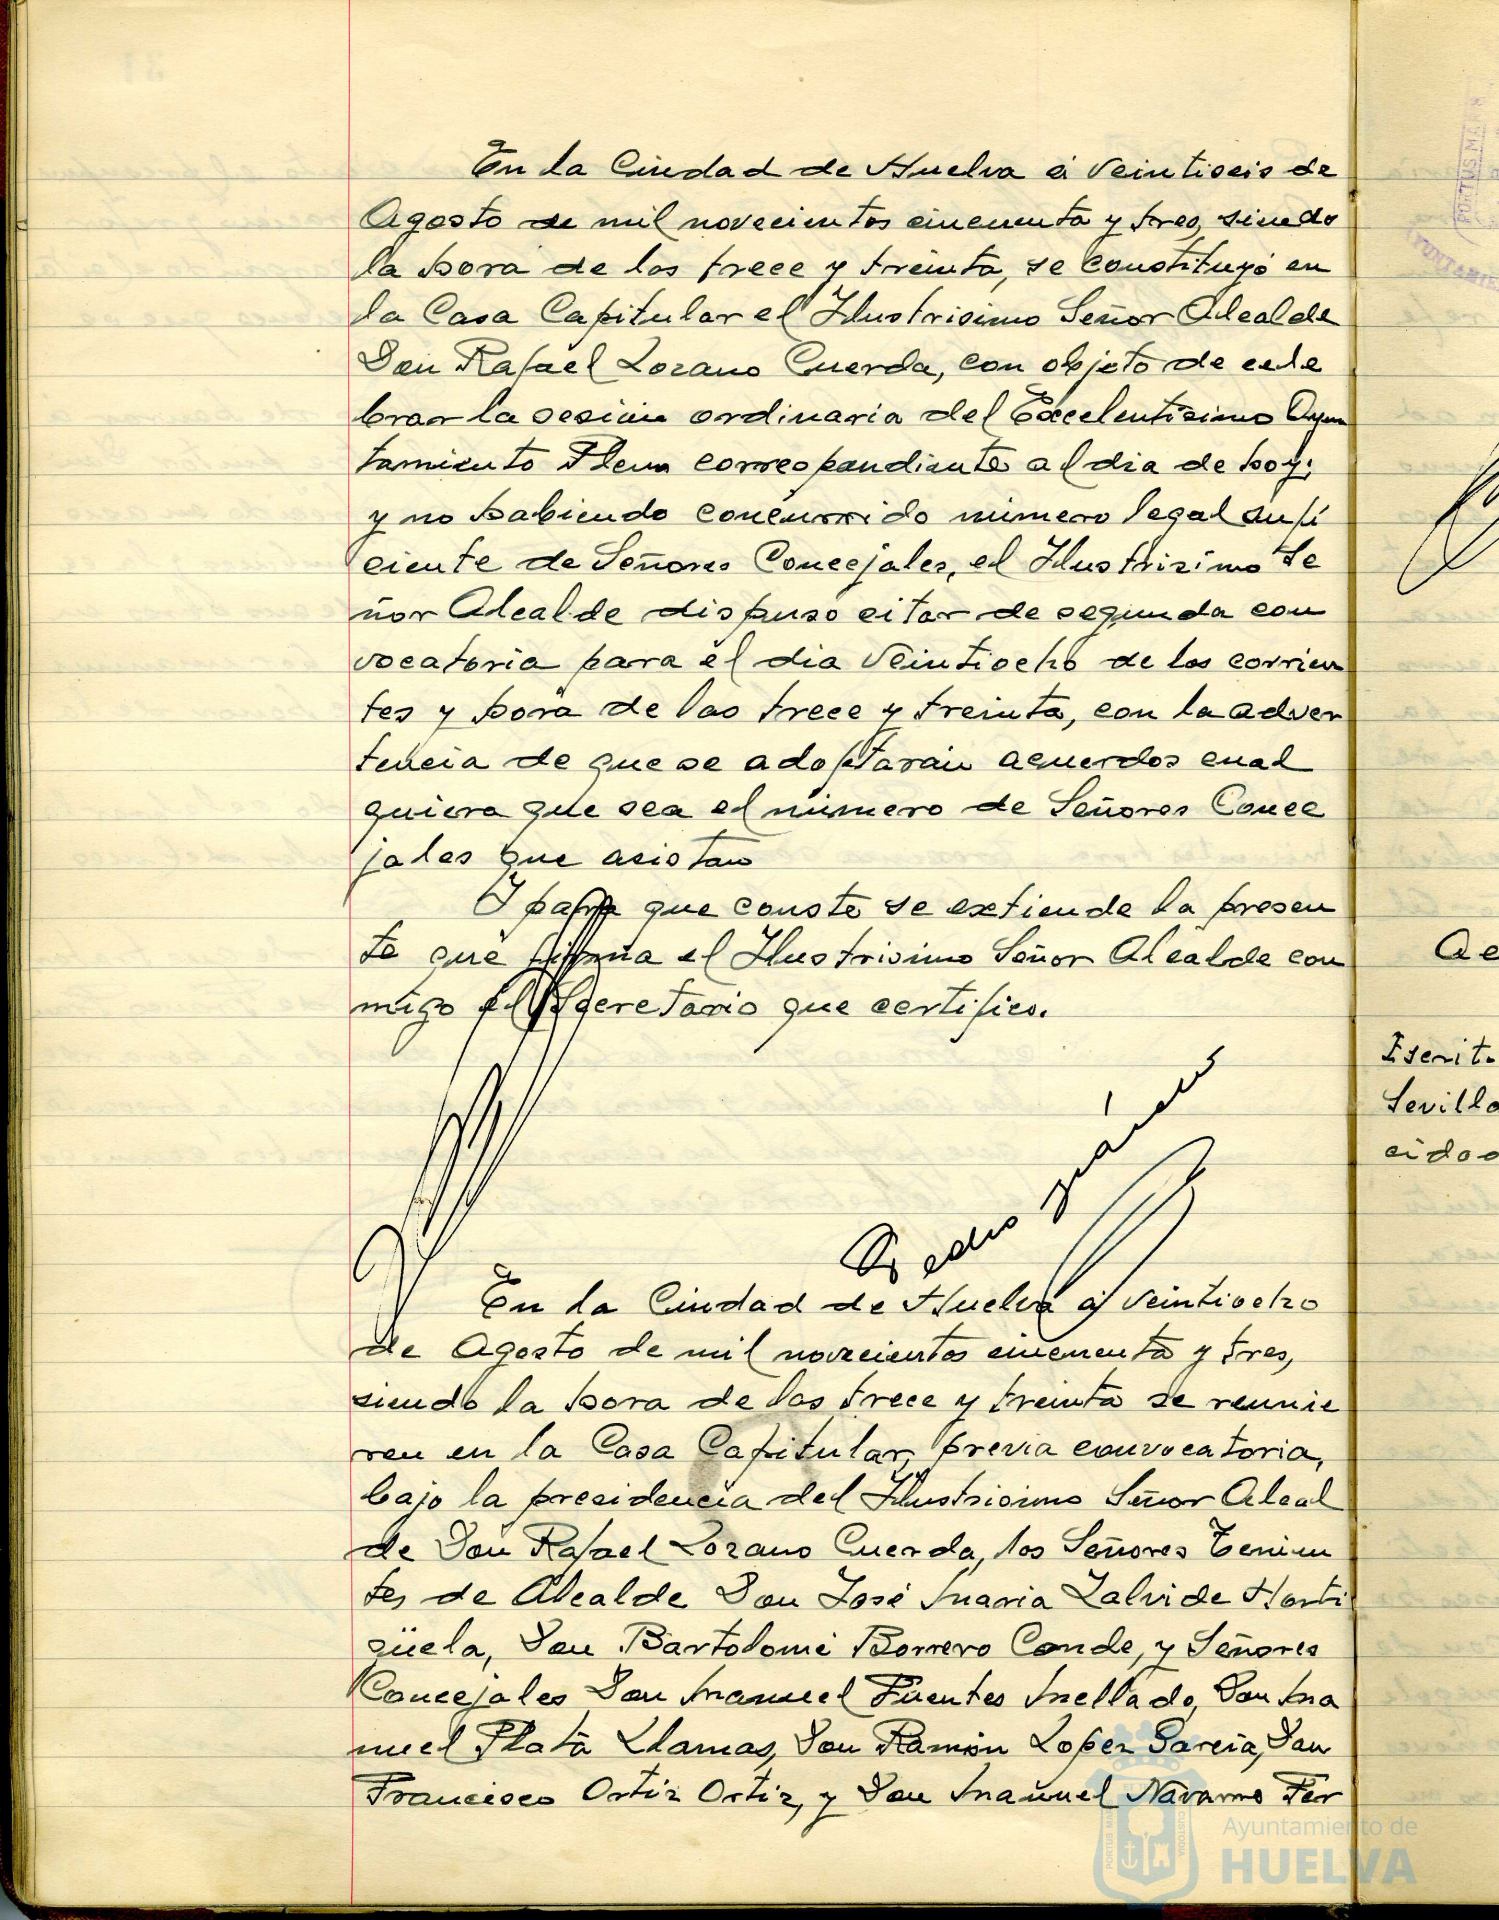 En la Ciudad de Huelva á veintiseis de
Agosto de mil novecientos cincuenta y tres, siendo
la hora de las trece y treinta, se constituyó en
la Casa Capitular el Ilustrisimo Señor Alcalde
Don Rafael Lozano Cuerda, con objeto de cele
brar la sesión ordinaria del Excelentisimo Ayun
tamiento Pleno correspondiente al dia de hoy;
y no habiendo concurrido número legal sufi
ciente de Señores Concejales, el Ilustrisimo Se
ñor Alcalde dispuso citar de segunda con
vocatoria para el dia veintiocho de los corrien
tes y hora de las trece y treinta, con la adver
tencia de que se adoptarán acuerdos cual
quiera que sea el número de Señores Conce
jales que asistan
Y para que conste se extiende la presen
te que firma el Ilustrisimo Señor Alcalde con
migo el Secretario que certifico.
Pedro
En la Ciudad de Huelva á veintiocho
de Agosto de mil novecientos cincuenta y tres,
siendo la hora de las trece y treinta se reunie
ron en la Casa Capitular, previa convocatoria,
bajo la presidencia del Ilustrisimo Señor Alcal
de Don Rafael Lozano Cuerda, los Señores Tenien
tes de Alcalde Don José Maria Zalvide Horti
güela, Don Bartolomé Borrero Conde, y Señores
Concejales Don Manuel Fuentes Mellado, Don Ma
nuel Plata Llamas, Don Ramón Lopez Garcia, Don
Francisco Ortiz Ortiz, y Don Manuel Navarro Fer
PORTUS MAR
Ac
Escrit
Sevilla
cidos
Ayuntamiento de
HUELVA